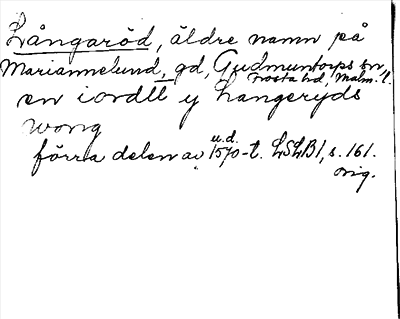 Långaröd, äldre namn på
Mariannelund, gd, Gudmuntorps sn,
Frosta hd, Malm. l.
en iordtt y Langeryds
wong
förra delen av u.d. 1570-t. LSLB1, s. 161.
orig.